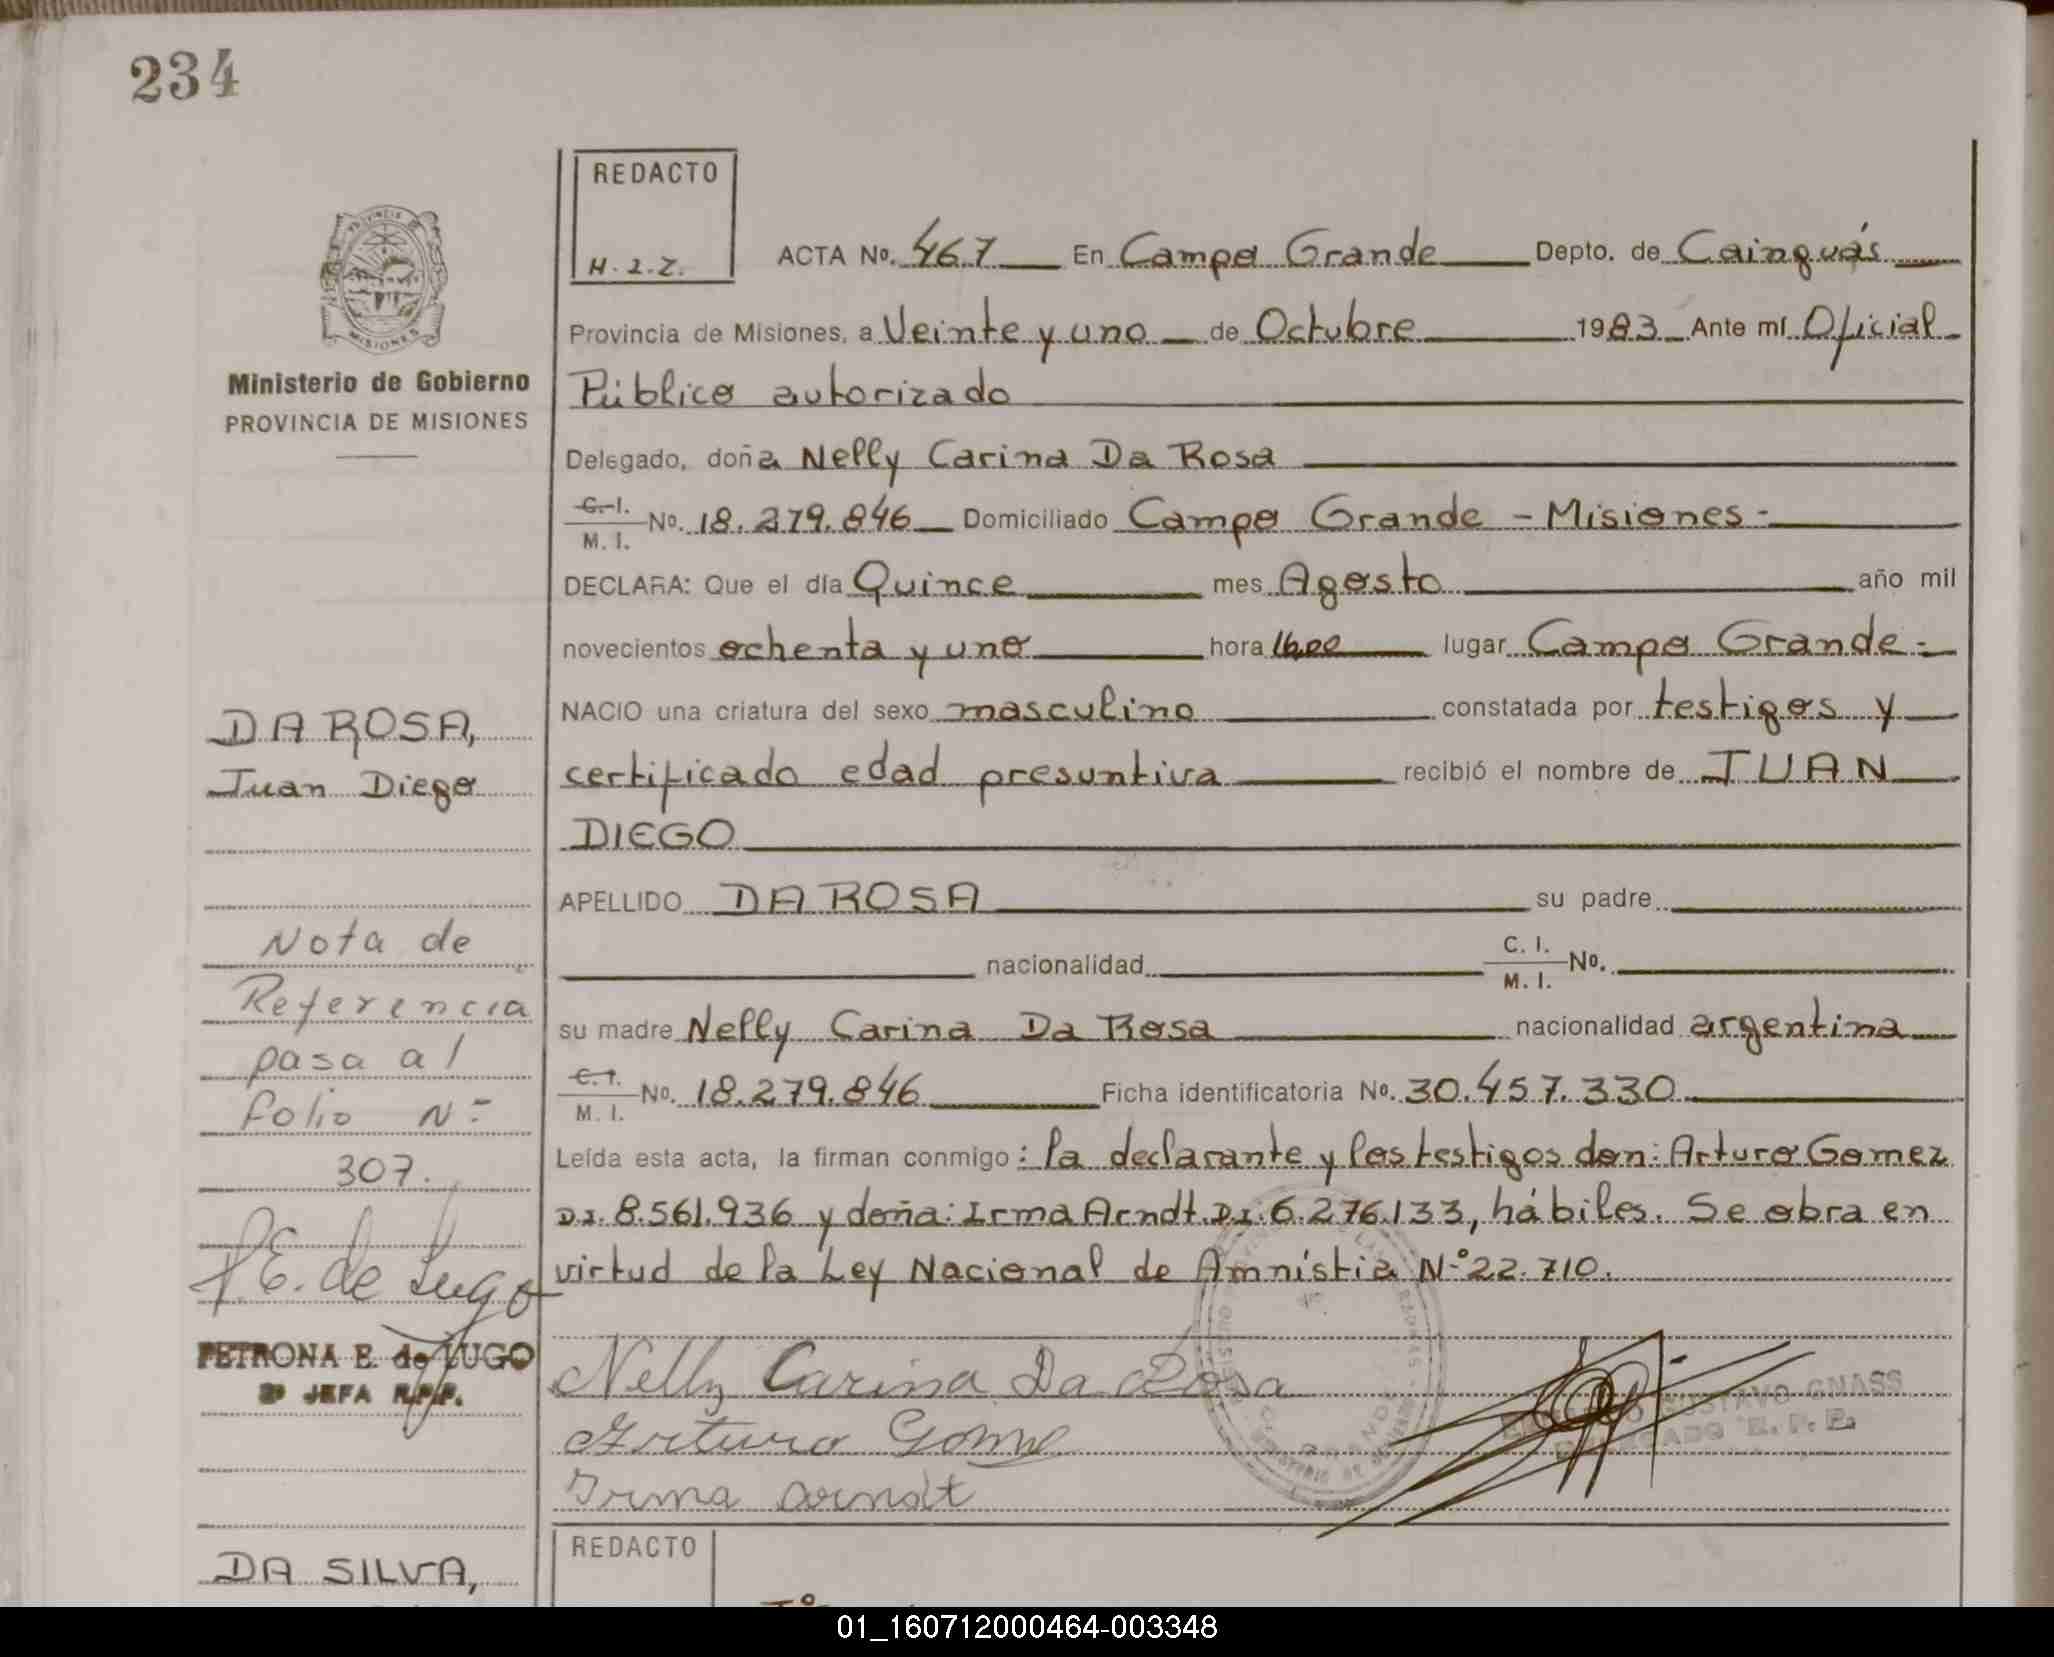 234
REDACTO
H.I.Z.
ACTA No. 467 En Campo Grande Depto. de Cainguás
Provincia de Misiones, a Veinte y uno de Octubre 1983 Ante mí Oficial
Público autorizado
Delegado, doña Nelly Carina Da Rosa
C.I. M.I. No. 18.279.846 Domiciliado Campo Grande - Misiones -
DECLARA: Que el día Quince mes Agosto año mil
novecientos ochenta y uno hora 16,00 lugar Campo Grande -
NACIO una criatura del sexo masculino constatada por testigos y
certificado edad presuntiva recibió el nombre de JUAN
DIEGO
APELLIDO DA ROSA su padre
nacionalidad C. I. M. I. No.
su madre Nelly Carina Da Rosa nacionalidad argentina
C.I. M. I. No. 18.279.846 Ficha identificatoria No. 30.457.330
Leída esta acta, la firman conmigo: la declarante y los testigos don: Arturo Gomez
D.I. 8.561.936 y doña: Irma Arndt. D.I. 6.276.133, hábiles. Se obra en
virtud de la Ley Nacional de Amnistia N° 22.710.
Nelly Carina Da Rosa
Arturo Gomez
Irma Arndt
GUSTAVO GNASS
DELEGADO R. P. P.
PROVINCIA DE MISIONES
Ministerio de Gobierno
PROVINCIA DE MISIONES
DA ROSA,
Juan Diego
Nota de
Referencia
pasa al
folio N°
307.
P.E. de Lugo
PETRONA E. de LUGO
2º JEFA R.P.P.
DA SILVA,
REDACTO
01_160712000464-003348